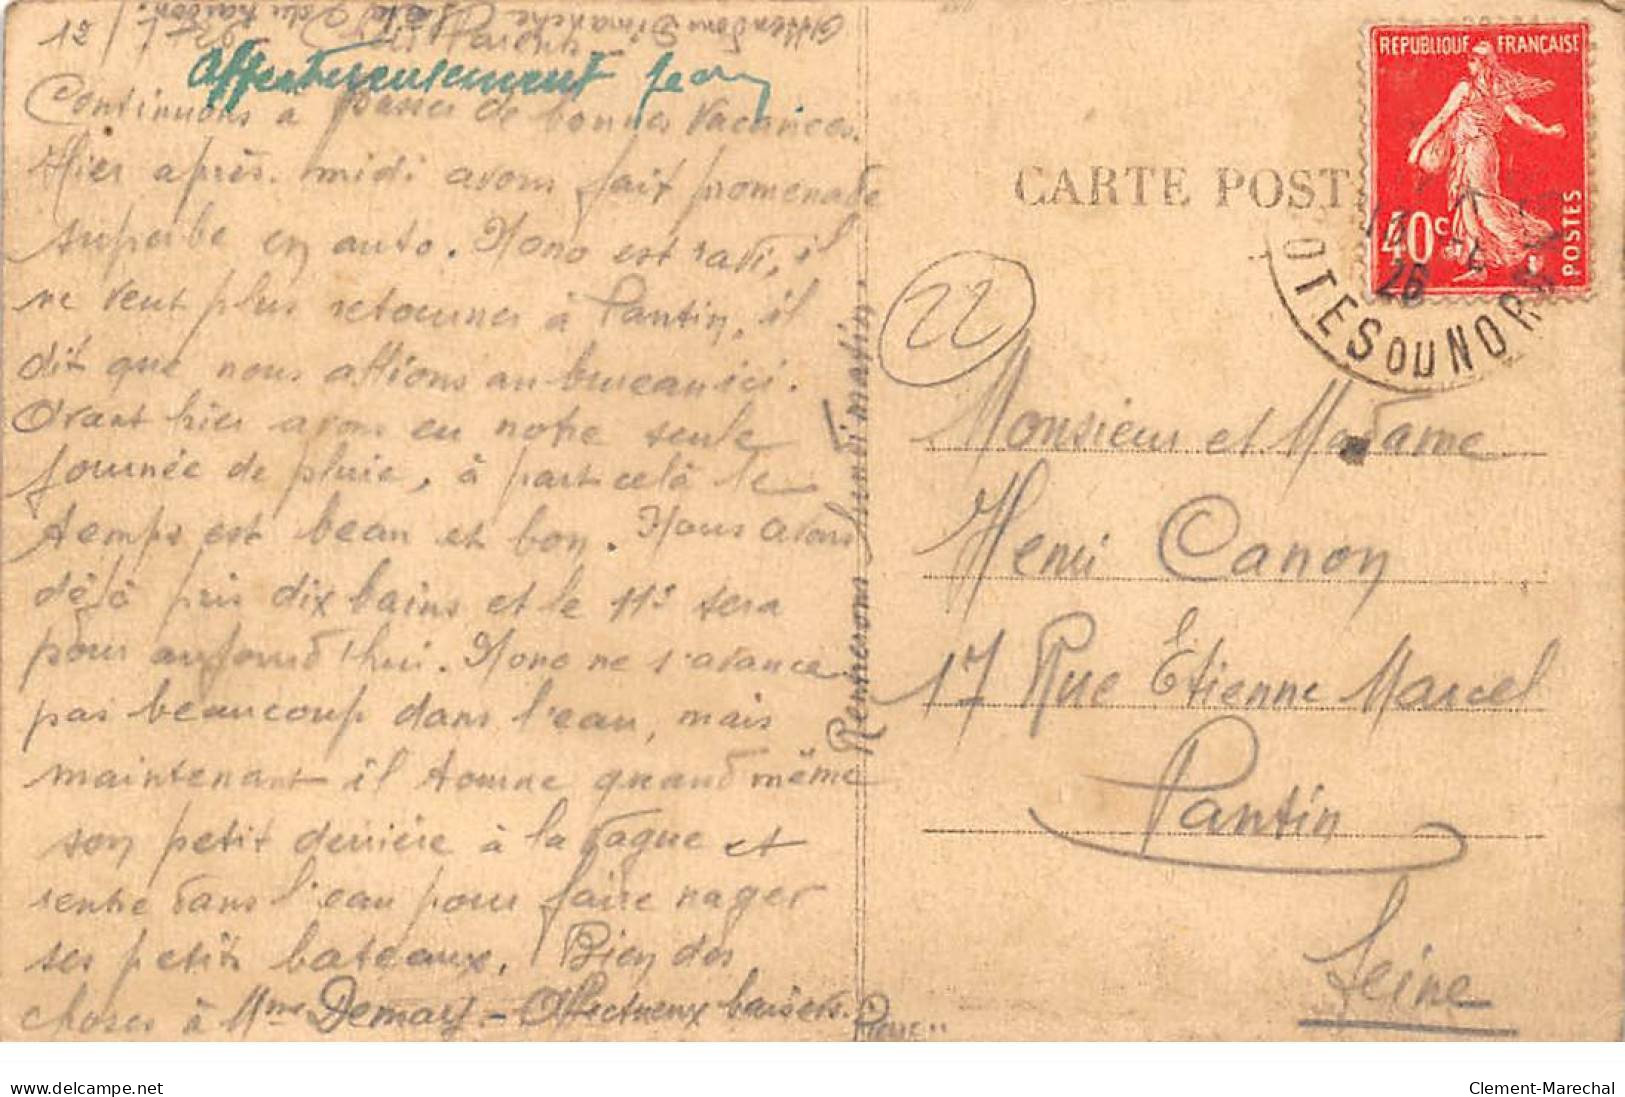 12/7
Affectueusement Jean
Continuons à passer de bonnes vacances.
Hier après-midi avons fait promenade
superbe en auto. Nono est ravi, il
ne veut plus retourner à Pantin, il
dit que nous allions au bureau ici.
Avant hier avons eu notre seule
journée de pluie, à part celà le
temps est beau et bon. Nous avons
déjà pris dix bains et le 11e sera
pour aujourd'hui. Nono ne s'avance
pas beaucoup dans l'eau, mais
maintenant il tourne quand même
son petit derrière à la vague et
rentre dans l'eau pour faire nager
ses petits bateaux. Bien des
choses à Mme Demary - Affectueux baisers.
Rentrerons lundi matin.
CARTE POST
REPUBLIQUE FRANÇAISE
40c
POSTES
26
OTES DU NOR
22
Monsieur et Madame
Henri Canon
17 Rue Étienne Marcel
Pantin
Seine
delcampe.net
Clement-Marechal